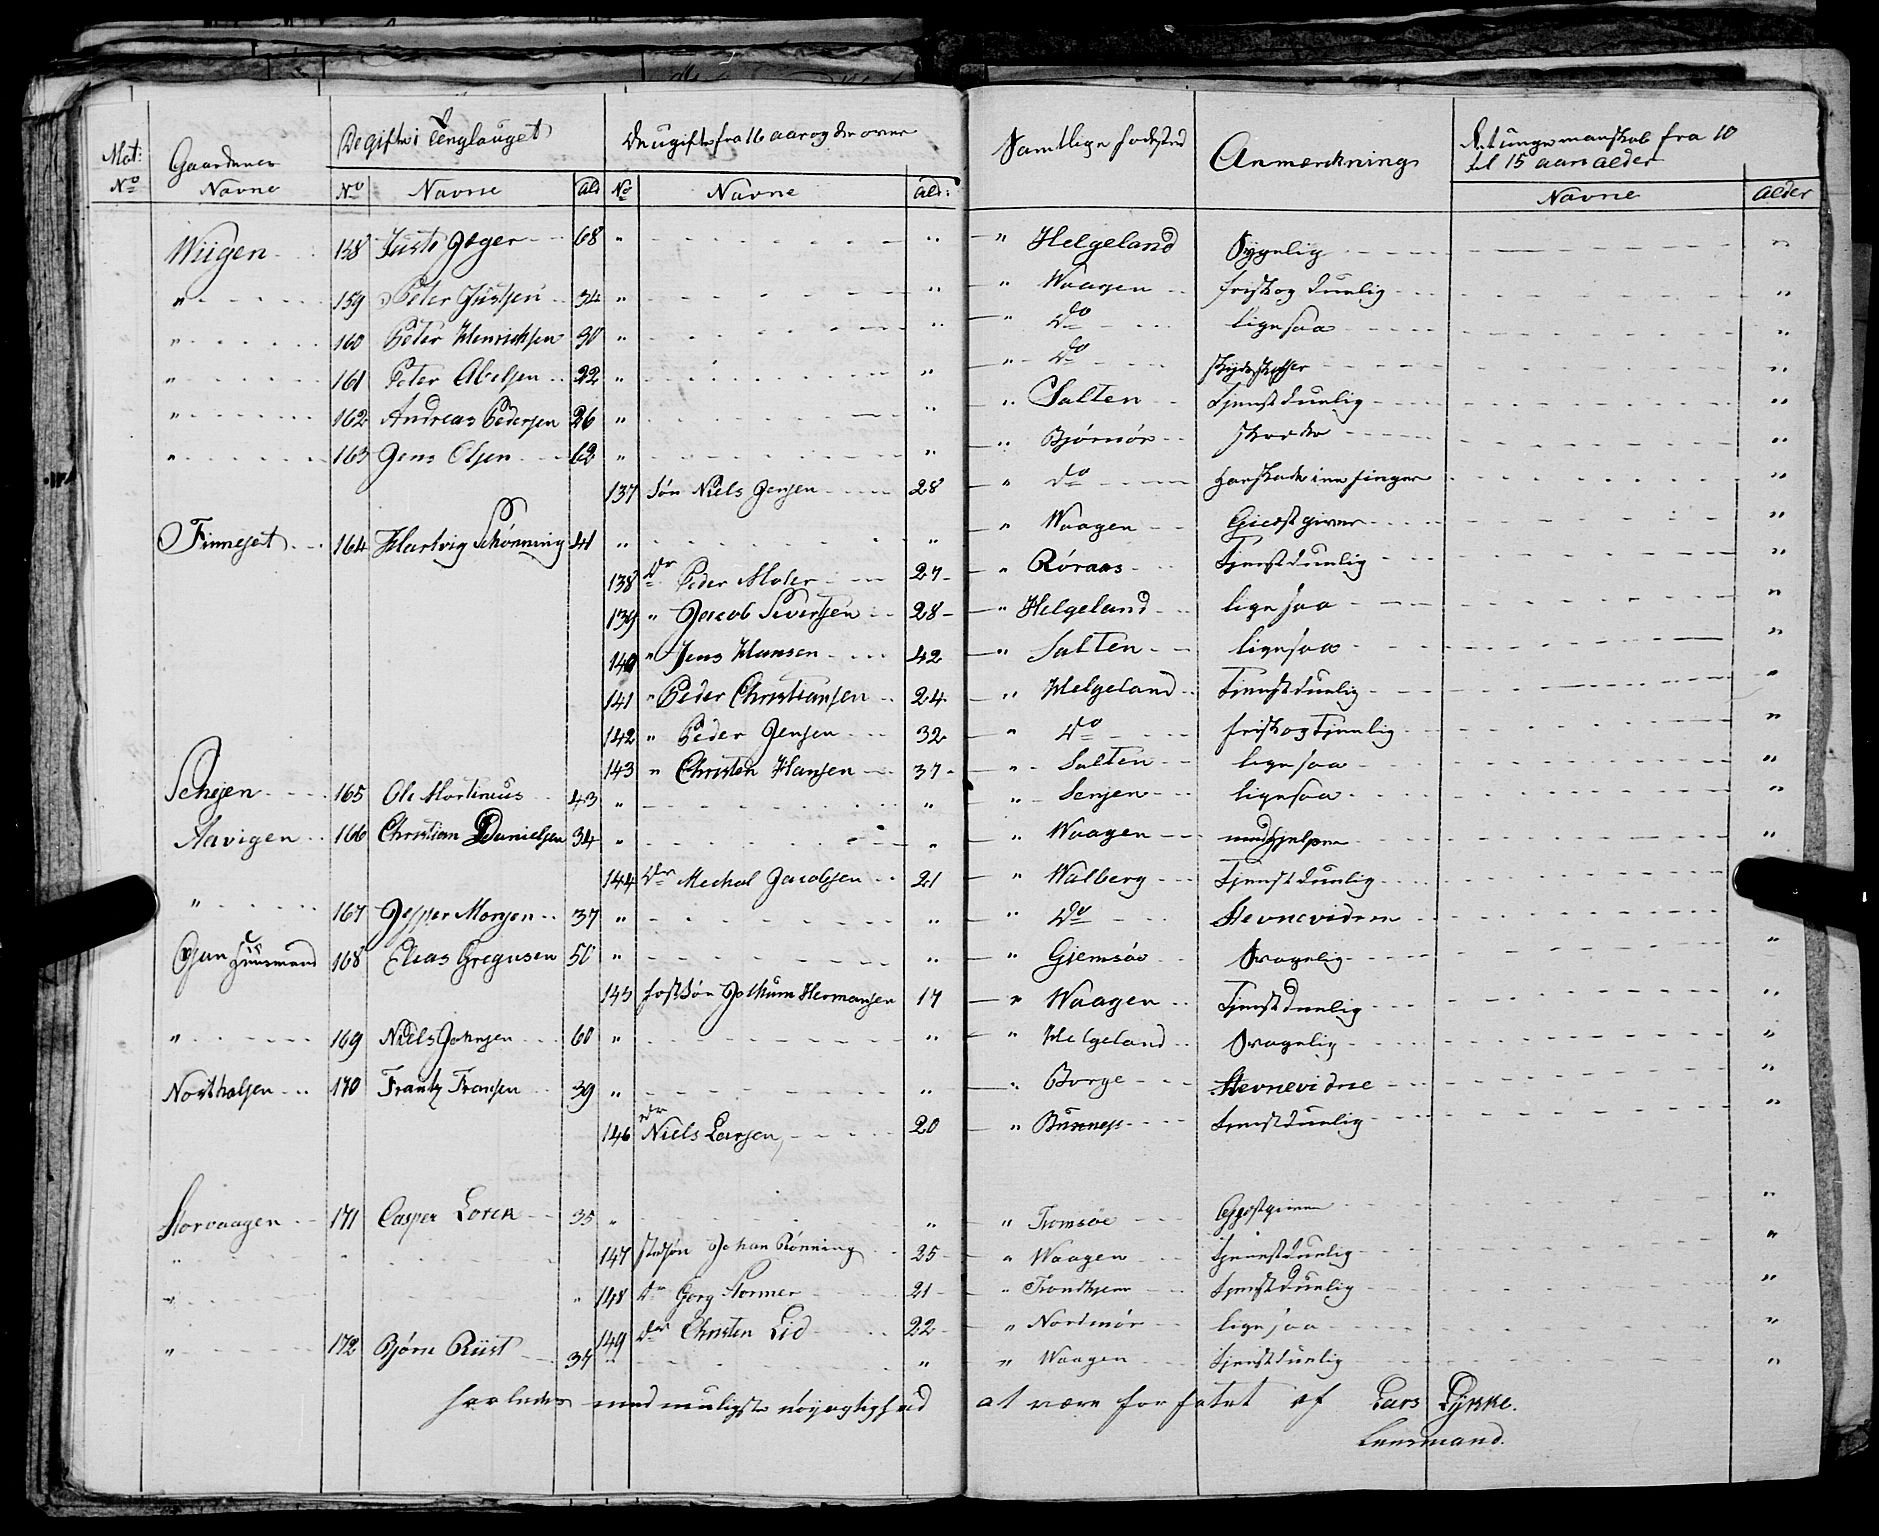 Mat: Gaardenes De gifte i Lenglauget De ugifte fra 16 aar og der over Samtlige fødested Anmærckning Det unge manskab fra 10 til 15 aars alder
No Navne No Navne Ald No Navne Ald: Navne Alder
Wiigen 158 Justs Jæger 68 " " " Helgeland Svagelig "
" 159 Peter Justsen 34 " " " Waagen frisk og duelig "
" 160 Peter Henrichsen 30 " " " Do ligesaa "
" 161 Peter Abelsen 22 " " " Do Skydsskaffer "
" 162 Andreas Pedersen 26 " " " Salten Tjenstduelig "
" 163 Jens Olsen 62 " " " Bjørnør "
137 Søn Niels Jensen 28 " Do "
Finneset 164 Hartvig Schønning 41 " " " Waagen Giæstgiver "
138 Dr Peder Moler 27 " Røraas Tjenstduelig "
139 " Jacob Sivertsen 28 " Helgeland ligesaa "
140 " Jens Hansen 42 " Salten ligesaa "
141 " Peder Christiansen 24 " Helgeland Tjenstduelig "
142 " Peder Jensen 32 " Do frisk og Tjenlig "
143 " Christen Hansen 37 " Salten ligesaa "
Schejen 165 Ole Mortinus 43 " " " Senjen ligesaa "
Aavigen 166 Christian Danielsen 34 " " " Waagen medhjelper "
144 Dr Mechal Jacobsen 21 " Walberg Tjenstduelig "
" 167 Jesper Monsen 37 " " " Do Stevnevidne
Gjan Huusmand 168 Elias Gregusen 50 " " " Giemsøe Svagelig "
145 fostsøn Jochum Hermansen 17 " Waagen Tjenstduelig "
" 169 Niels Johnsen 60 " " " Helgeland Svagelig "
Northolsen 170 Frantz Fransen 39 " " " Borge Stevnevidne "
146 Dr Niels Larsen 20 " Buxness Tjenstduelig "
Storvaagen 171 Casper Lorck 35 " " " Tromsøe Gjæstgiver "
" 147 stedsøn Johan Rønning 25 " Waagen Tjenstduelig "
" " 148 dr Gorg Stormer 21 " Trondhjem Tjenstduelig "
149 dr Christen Lid 22 " Nordmør ligesaa "
" 172 Bjørn Riist 37 " " " Waagen Tjenstduelig "
saaledes med muligste nøyagtighed at være forfatet af Lars Lykke.
Lensmand.